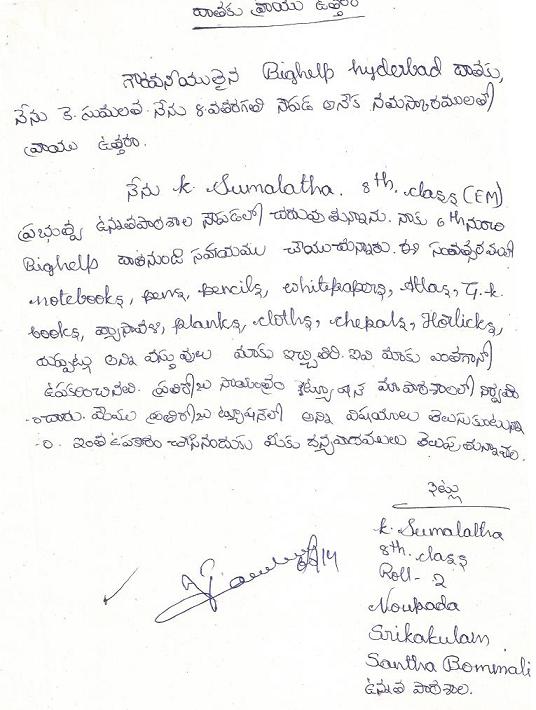 దాతకు వ్రాయు ఉత్తరం
గౌరవనీయులైన Bighelp hyderbad దాతకు,
నేను కె. సుమలత. నేను 8వతరగతి నౌపడ్ అనేక నమస్కారములతో
వ్రాయు ఉత్తరం.
నేను K. Sumalatha. 8th. class (EM)
ప్రభుత్వ ఉన్నతపాఠశాల నౌపడలో చదువుతున్నాను. నాకు 6th నుండి
Bighelp దాతనుండి సహాయము చేయుచున్నారు. ఈ సంవత్సరము
notebooks, pens, pencils, whitepapers, Atlas, G.k
books, వ్యాసావళి, planks, cloths, chepals, Horlicks,
దుప్పట్లు అన్ని వస్తువులు మాకు ఇచ్చితిరి. ఇవి మాకు ఎంతగానో
ఉపకరించినవి. ప్రతిరోజు సాయంత్రం ట్యూషన్ మా పాఠశాలలో నిర్వహి
-ంచారు. మేము ప్రతిరోజు ట్యూషన్‌లో అన్ని విషయాలు తెలుసుకుంటున్నా
-ం. ఇంత ఉపకారం చేసినందుకు మీకు ధన్యవాదములు తెలుపుతున్నాను.
ఇట్లు
K. Sumalatha
8th. class
Roll - 2
Noupada
Srikakulam
Santha Bommali
ఉన్నత పాఠశాల.